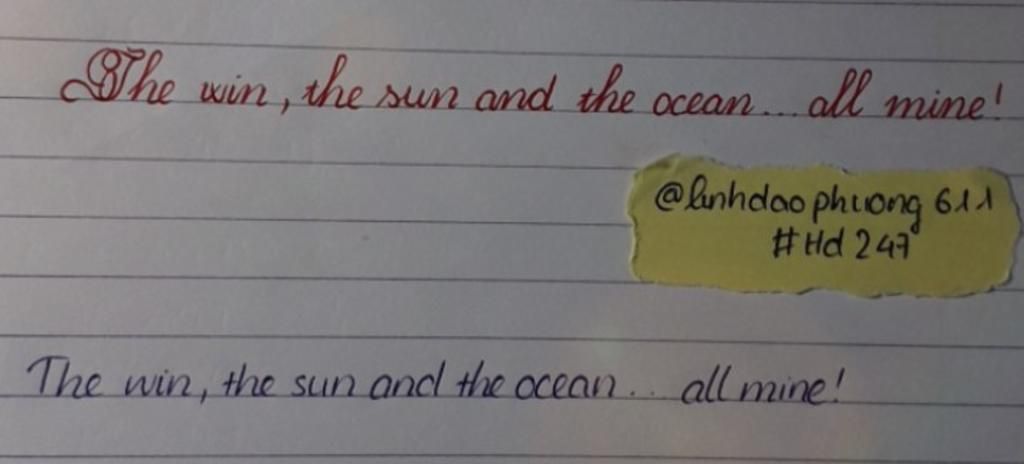 The win, the sun and the ocean... all mine!
@linhdaophuong 611
#Hd 247
The win, the sun and the ocean... all mine!